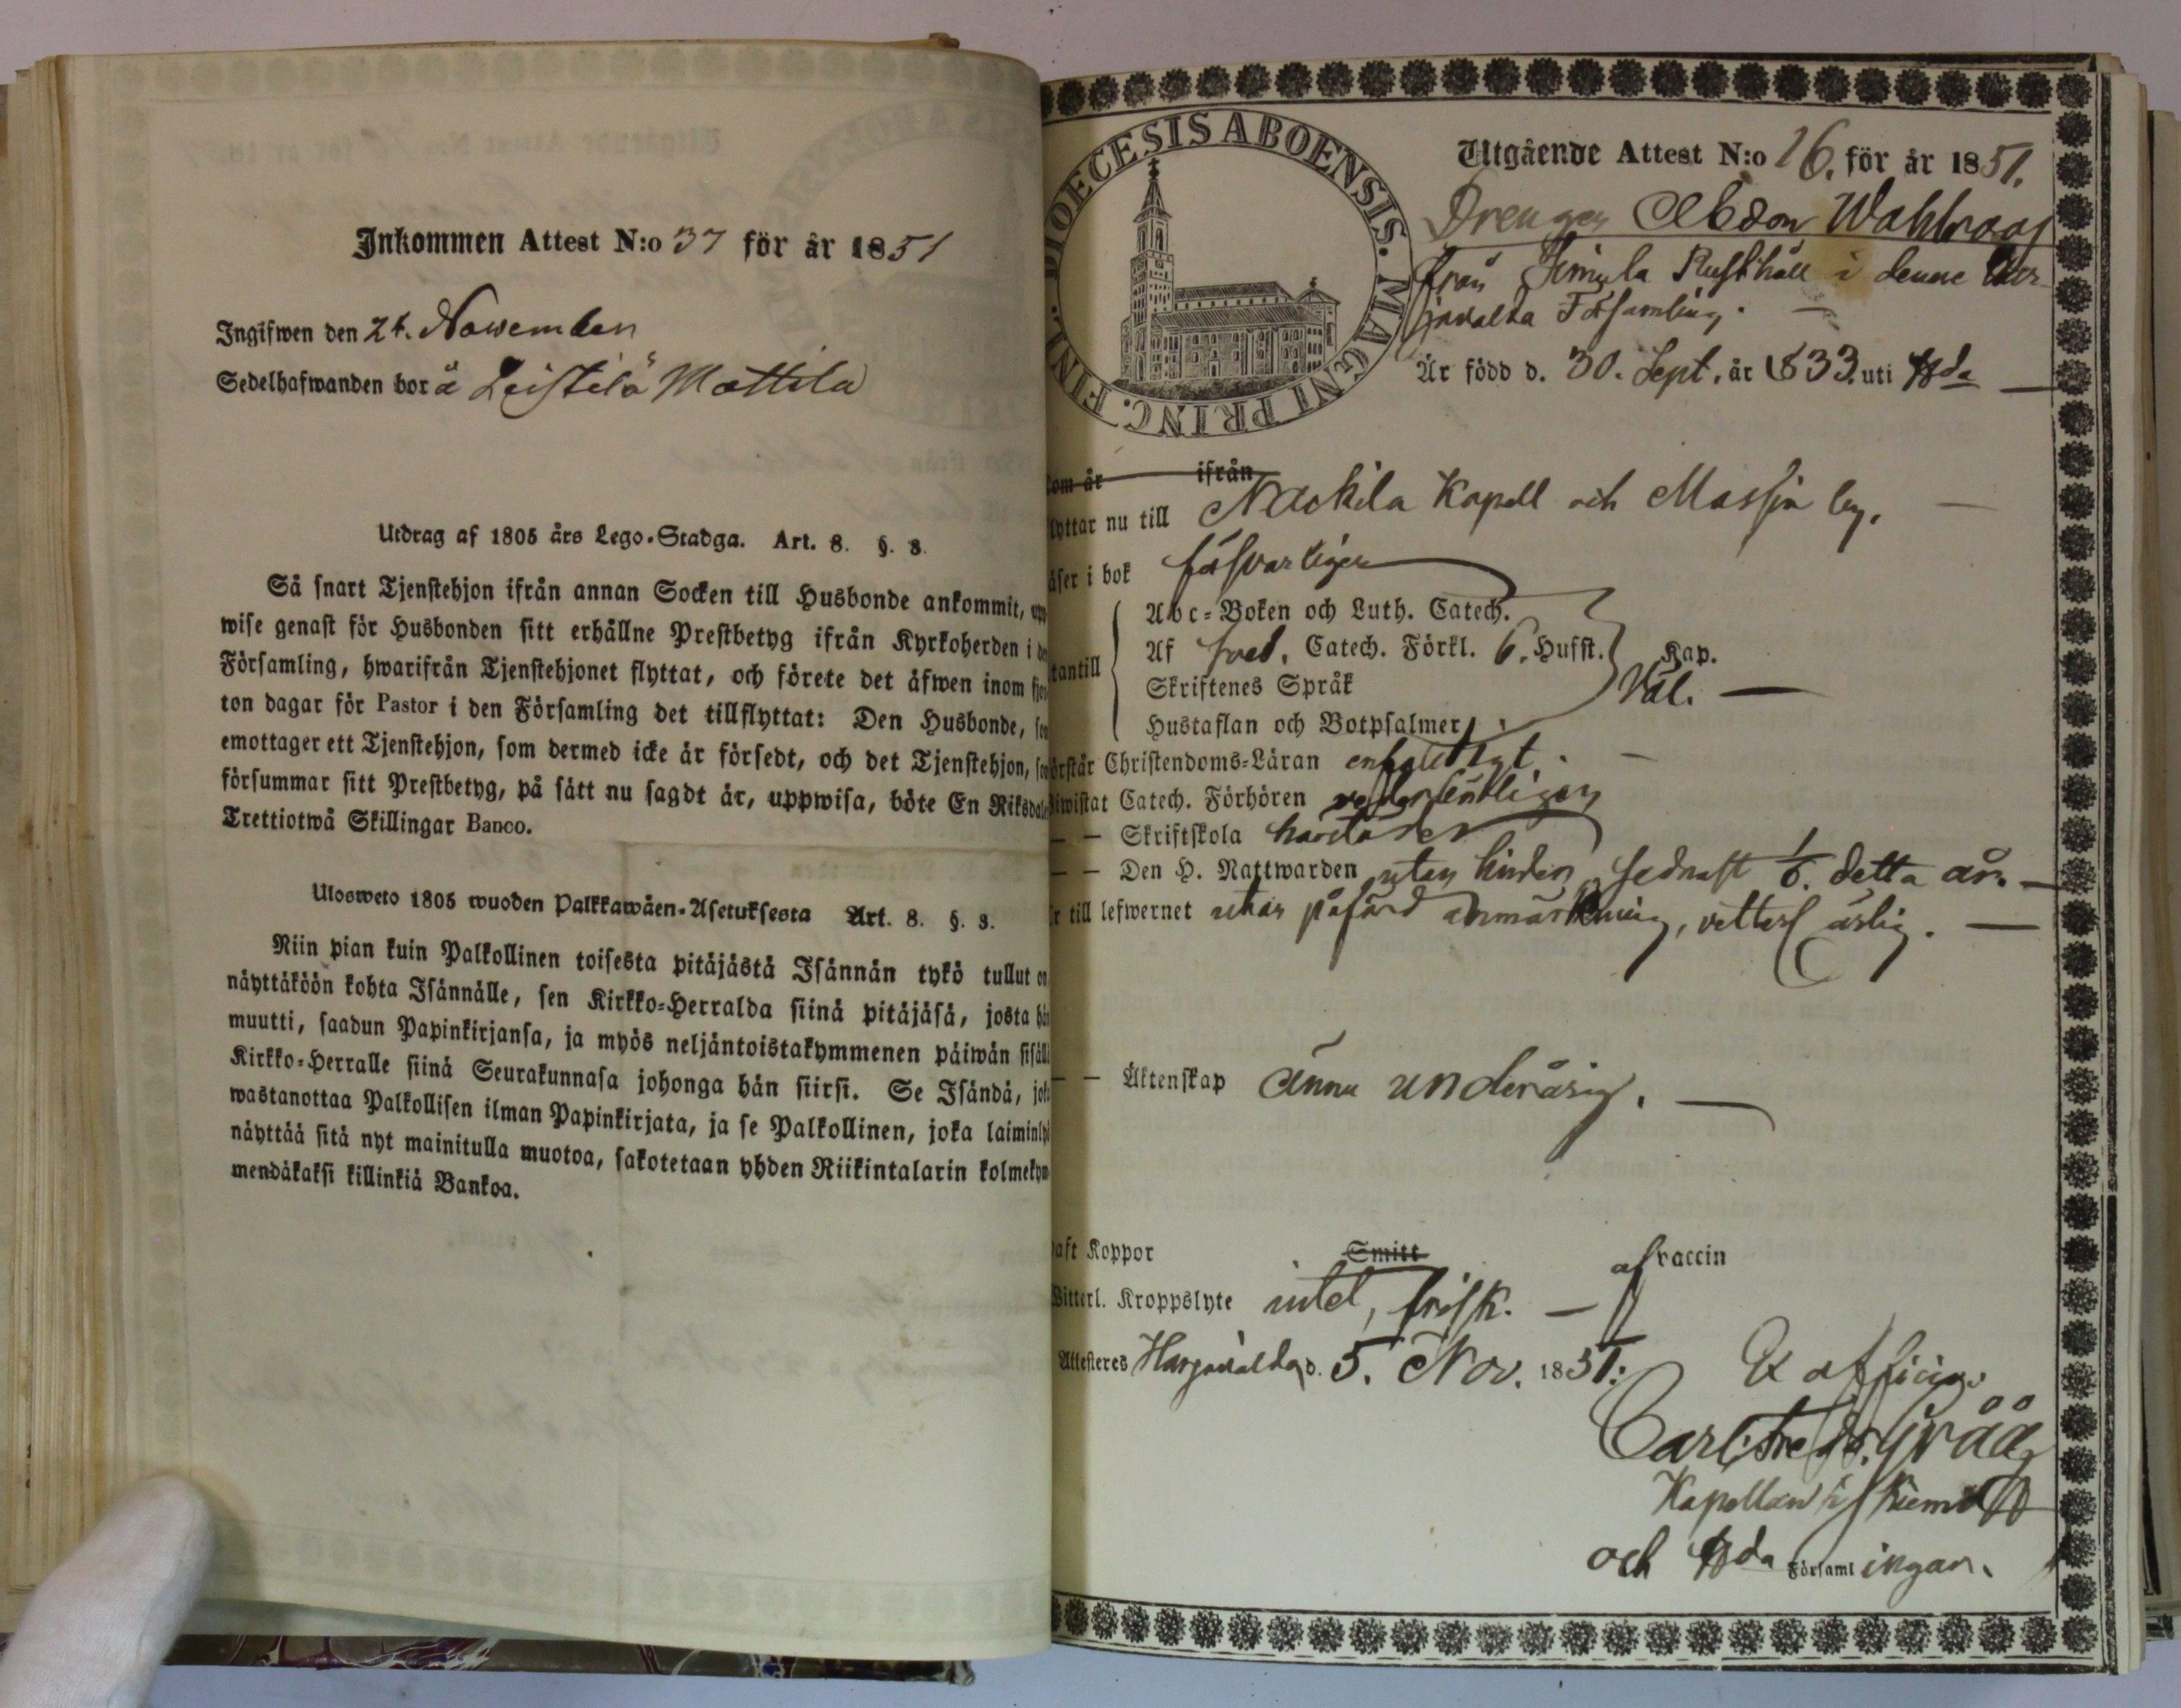 Inkommen Attest N:o 37 för år 1851
Ingifwen den 24. November
Sedelhafwanden bor å Leistilä Mattila
Utdrag af 1805 års Lego-Stadga. Art. 8. §. 8.
Så snart Tjenstehjon ifrån annan Socken till Husbonde ankommit, upp
wise genast för Husbonden sitt erhållne Prestbetyg ifrån Kyrkoherden i de
Församling, hwarifrån Tjenstehjonet flyttat, och förete det äfwen inom fjor
ton dagar för Pastor i den Församling det tillflyttat: Den Husbonde, som
emottager ett Tjenstehjon, som dermed icke är försedt, och det Tjenstehjon, som
försummar sitt Prestbetyg, på sätt nu sagdt är, uppwisa, böte En Riksdaler
Trettiotwå Skillingar Banco.
Ulosweto 1805 wuoden Palkkawäen-Asetuksesta Art. 8. §. 8.
Niin pian kuin Palkollinen toisesta pitäjästä Isännän tykö tullut on
näyttäköön kohta Isännälle, sen Kirkko-Herralda siinä pitäjäsä, josta hän
muutti, saadun Papinkirjansa, ja myös neljäntoistakymmenen päiwän sisällä
Kirkko-Herralle siinä Seurakunnasa johonga hän siirsi. Se Isändä, joka
wastanottaa Palkollisen ilman Papinkirjata, ja se Palkollinen, joka laiminlyö
näyttää sitä nyt mainitulla muotoa, sakotetaan yhden Riikintalarin kolmekym
mendäkaksi killinkiä Bankoa.
DIOECESIS ABOENSIS. MAGNI PRINC. FINL.
Utgående Attest N:o 16. för år 1851.
Drengen Abdon Wahlroos
från Simula Rusthåll i denne Har-
javalta Församling.
Är född d. 30. Sept. år 1833. uti H:da
kom år ifrån
flyttar nu till Nackila Kapell och Massia by.
läser i bok försvarligen
Abc-Boken och Luth. Catech.
utantill Af Sved. Catech. Förkl. 6. Hufst. Kap.
Skriftenes Språk Väl.
Hustaflan och Botpsalmer
förstår Christendoms-Läran enfaldigt.
biwistat Catech. Förhören ordentligen
— — Skriftskola härstädes
— — Den H. Nattwarden utan hinder, sednast 1/6. detta år.
är till lefwernet utan påförd anmärkning, vetterl. ärlig.
— — Äktenskap ännu underårig.
haft Koppor Smitt af vaccin
Witterl. Kroppslyte intet, frisk.
Attesteres Harjavalta d. 5. Nov. 1851.
Ex officio.
Carl Fredr. Gråå
Kapellan i Kiemo
och H:da Församlingar.